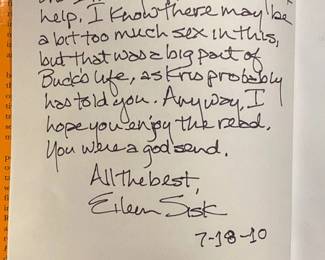 help. I know there may be
a bit too much sex in this,
but that was a big part of
Buck's life, as Kris probably
has told you. Anyway, I
hope you enjoy the read.
You were a godsend.
All the best,
Eileen Sisk
7-18-10